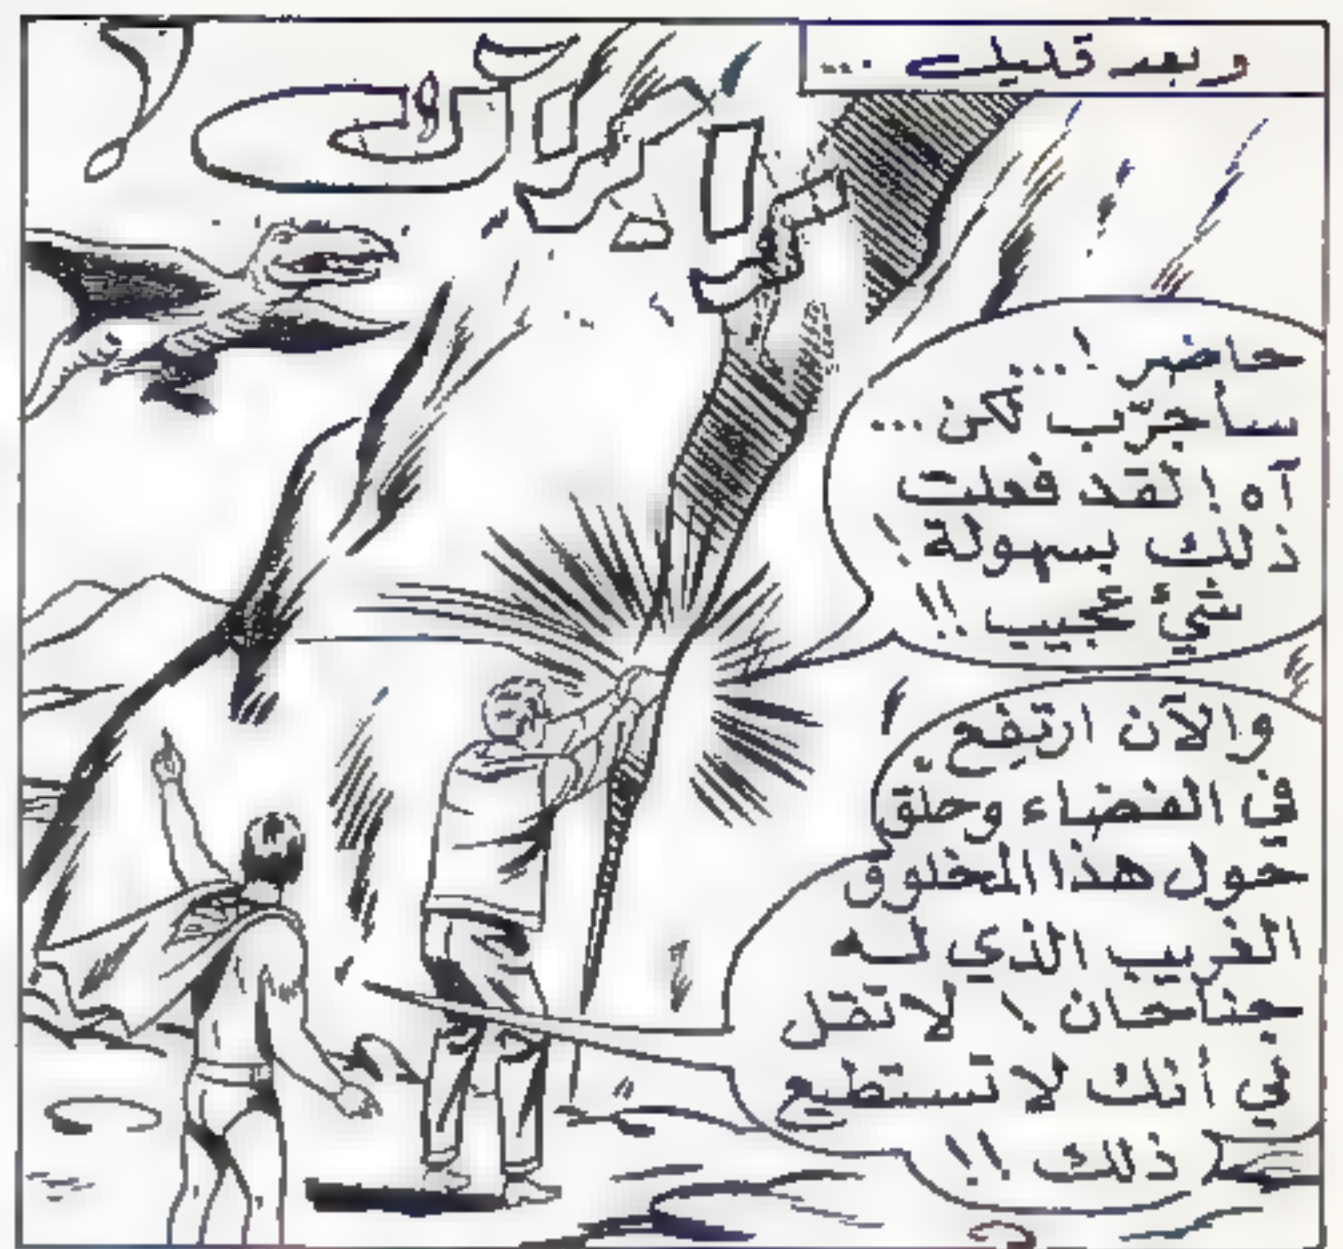 وبعد قليل ...
حاضر !...
سأجرّب لكن ...
آه ! لقد فعلت
ذلك بسهولة !
شيءٌ عجيب !!
والآن ارتفع
في الفضاء وحلق
حول هذا المخلوق
الغريب الذي له
جناحان ! لا تقل
لي أنك لا تستطيع
ذلك !!